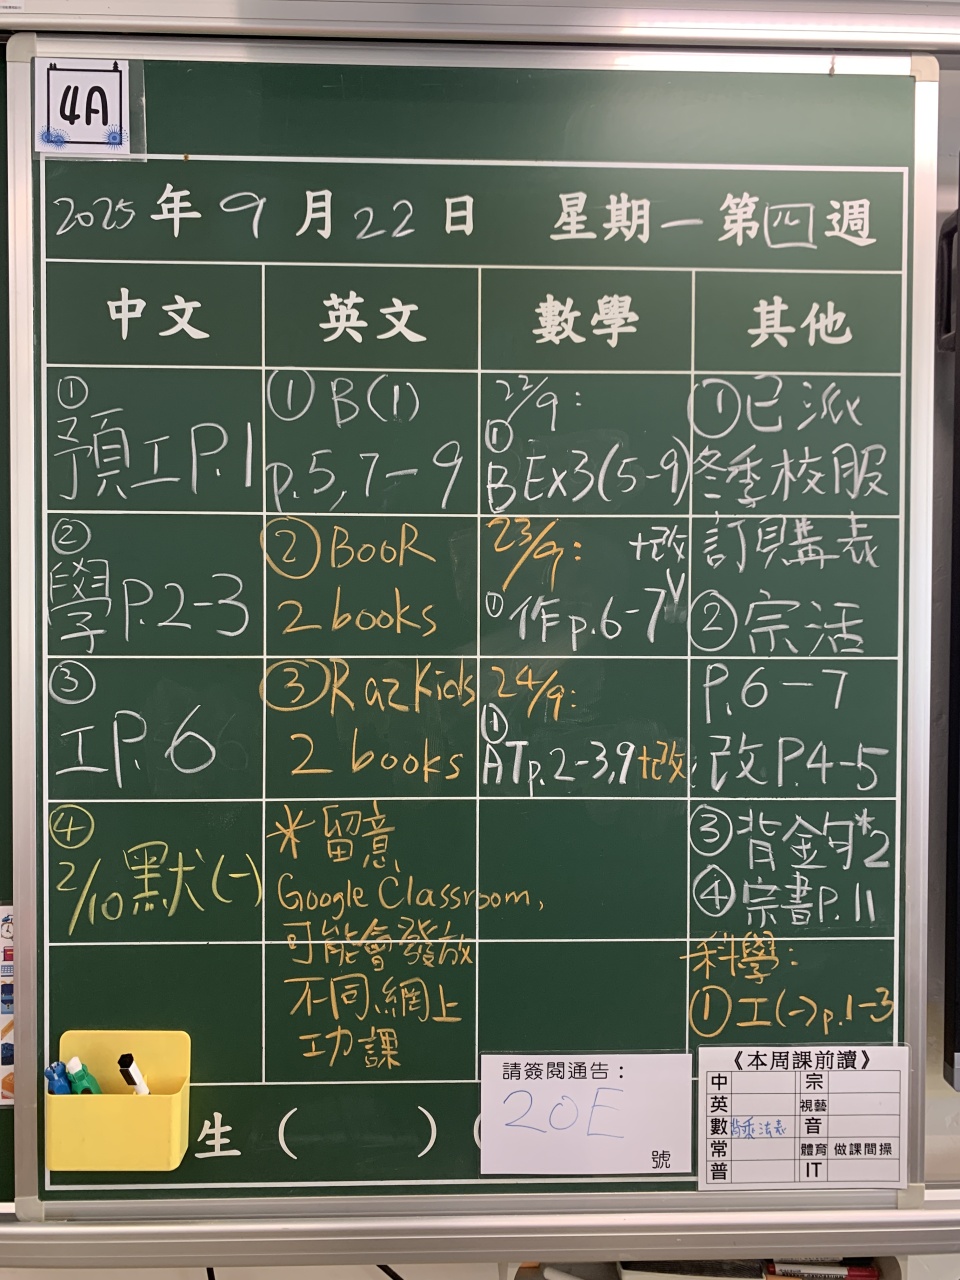 4A
2025年9月22日 星期一第四週
中文 英文 數學 其他
①
預工P.1
②
學P.2-3
③
工P.6
④
2/10默(一)
① B(1)
p.5,7-9
② BooR
2 books
③ RazKids
2 books
*留意
Google Classroom,
可能會發放
不同網上
功課
22/9:
①
BEx3(5-9)
23/9: +改
① 作p.6-7
24/9:
①
ATp.2-3,9+改
①已派
冬季校服
訂購表
②宗活
P.6-7
改P.4-5
③背金句*2
④宗書P.11
科學:
①工(一)p.1-3
生( ) (
請簽閱通告：
20E
號
《本周課前讀》
中 宗
英 視藝
數 背乘法表 音
常 體育 做課間操
普 IT